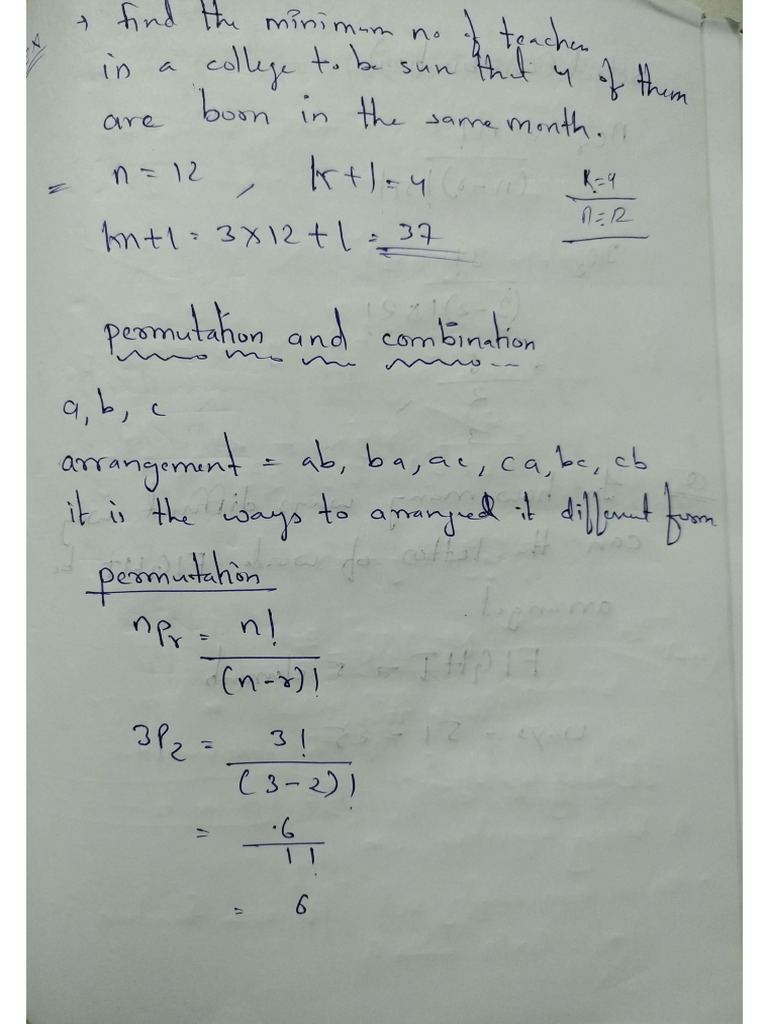 → find the minimum no of teacher
in a college to be sun that 4 of them
are born in the same month.
= n = 12 , k+1 = 4
K=4
n=12
kn+1 = 3×12+1 = 37
permutation and combination
a, b, c
arrangement = ab, ba, ac, ca, bc, cb
it is the ways to arranged it different form
permutation
nPr = n!
(n-r)!
3P2 = 3!
(3-2)!
= 6
1!
= 6